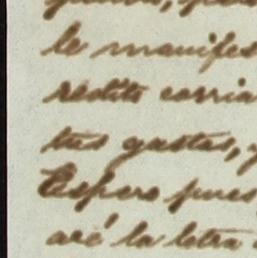 le manifes
redito corria
tus gastos, y
Espero pues
aré la letra